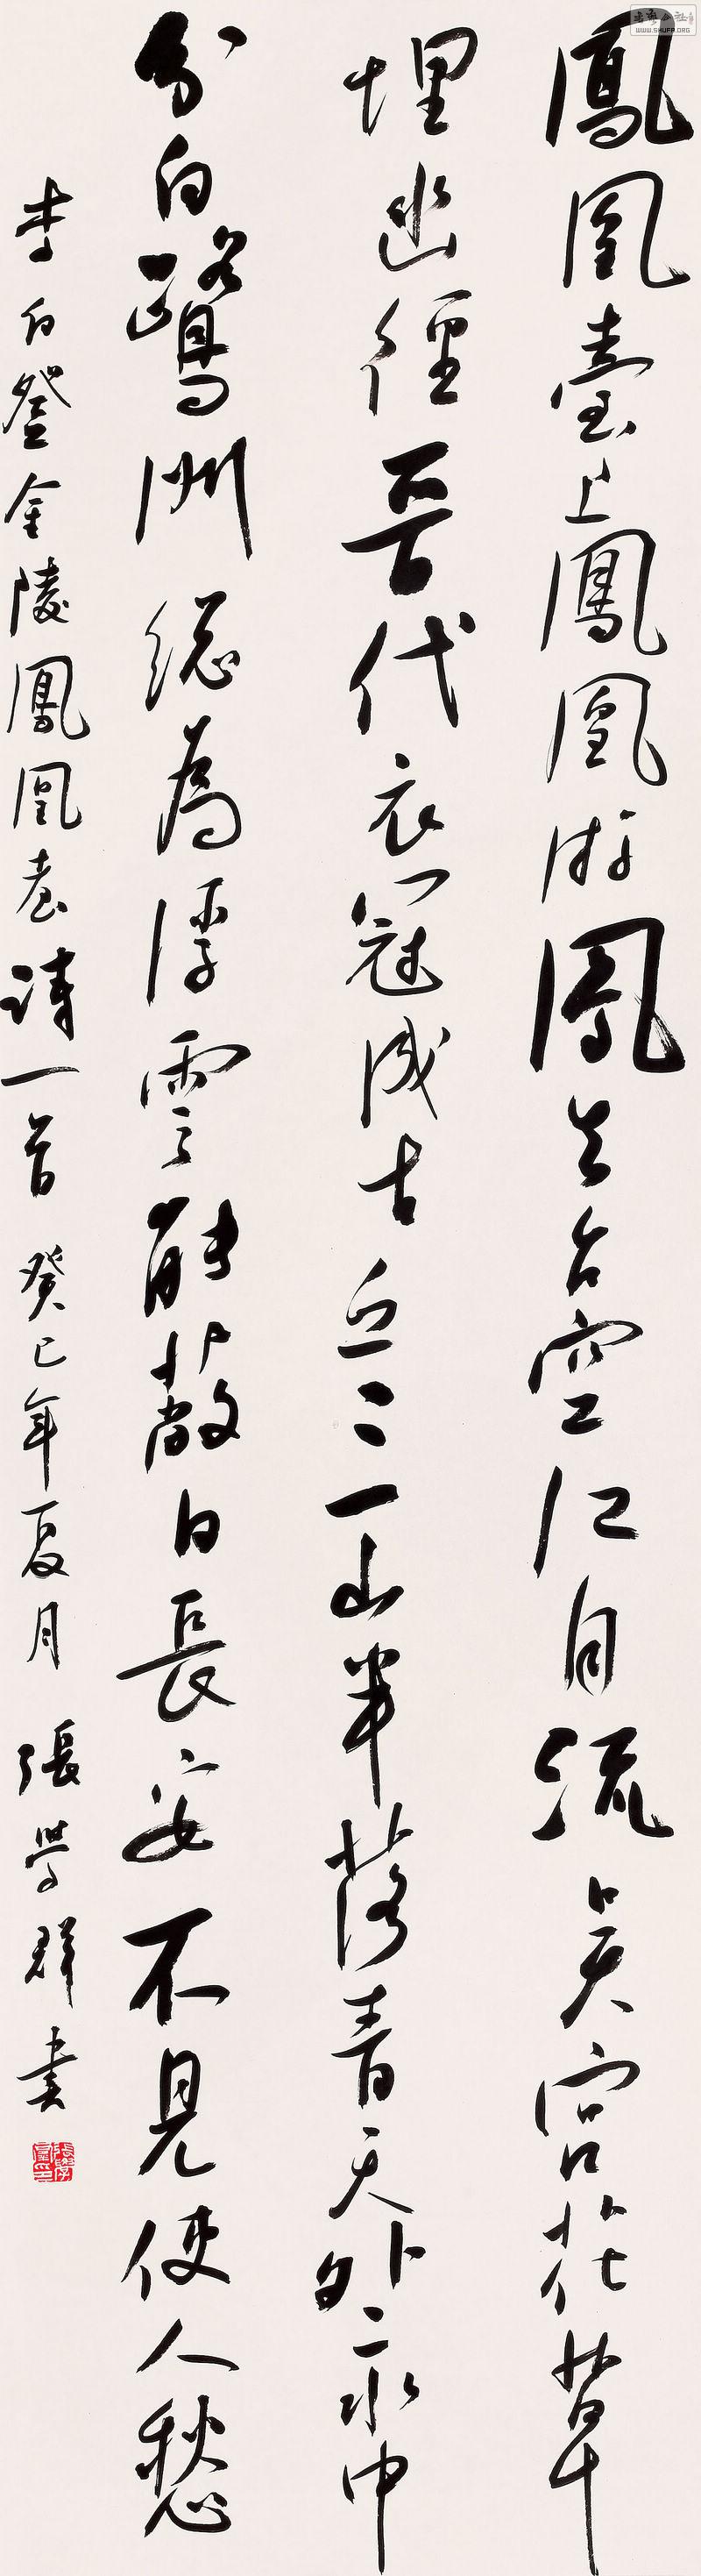 鳳凰臺上鳳凰游鳳去台空江自流吴宫花草
埋幽徑晉代衣冠成古丘三山半落青天外二水中
分白鷺洲總為浮雲能蔽日長安不見使人愁
李白登金陵鳳凰臺詩一首 癸巳年夏月 張學群書
WWW.SHUFA.ORG